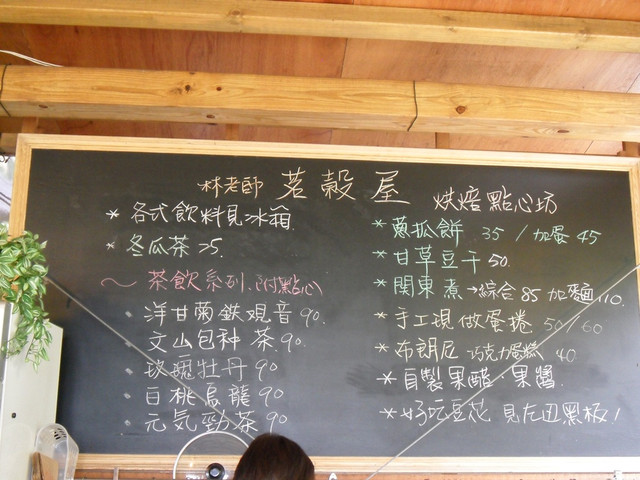 林老師 茗穀屋 烘焙點心坊
* 各式飲料見冰箱.
* 冬瓜茶 25.
~ 茶飲系列.(附點心)
• 洋甘菊鉄观音 90.
• 文山包种茶.90.
• 玫瑰牡丹 90
• 白桃烏龍 90
• 元気勁茶 90
* 蔥抓餅 35 / 加蛋 45
* 甘草豆干 50.
* 関東煮→綜合 85 加麵 110.
* 手工現做蛋捲 50/60
* 布朗尼 巧克力蛋糕 40
* 自製果醋·果醬.
* 好吃豆花 見左丑黑板!